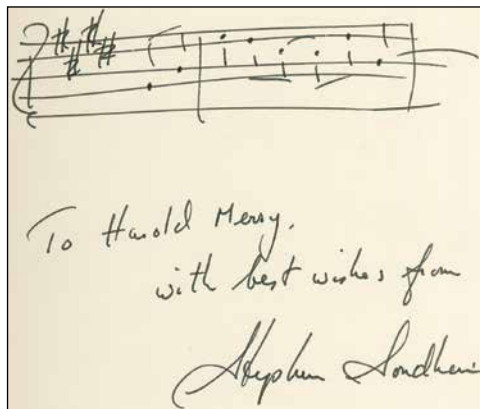 To Harold Merry,
with best wishes from
Stephen Sondheim